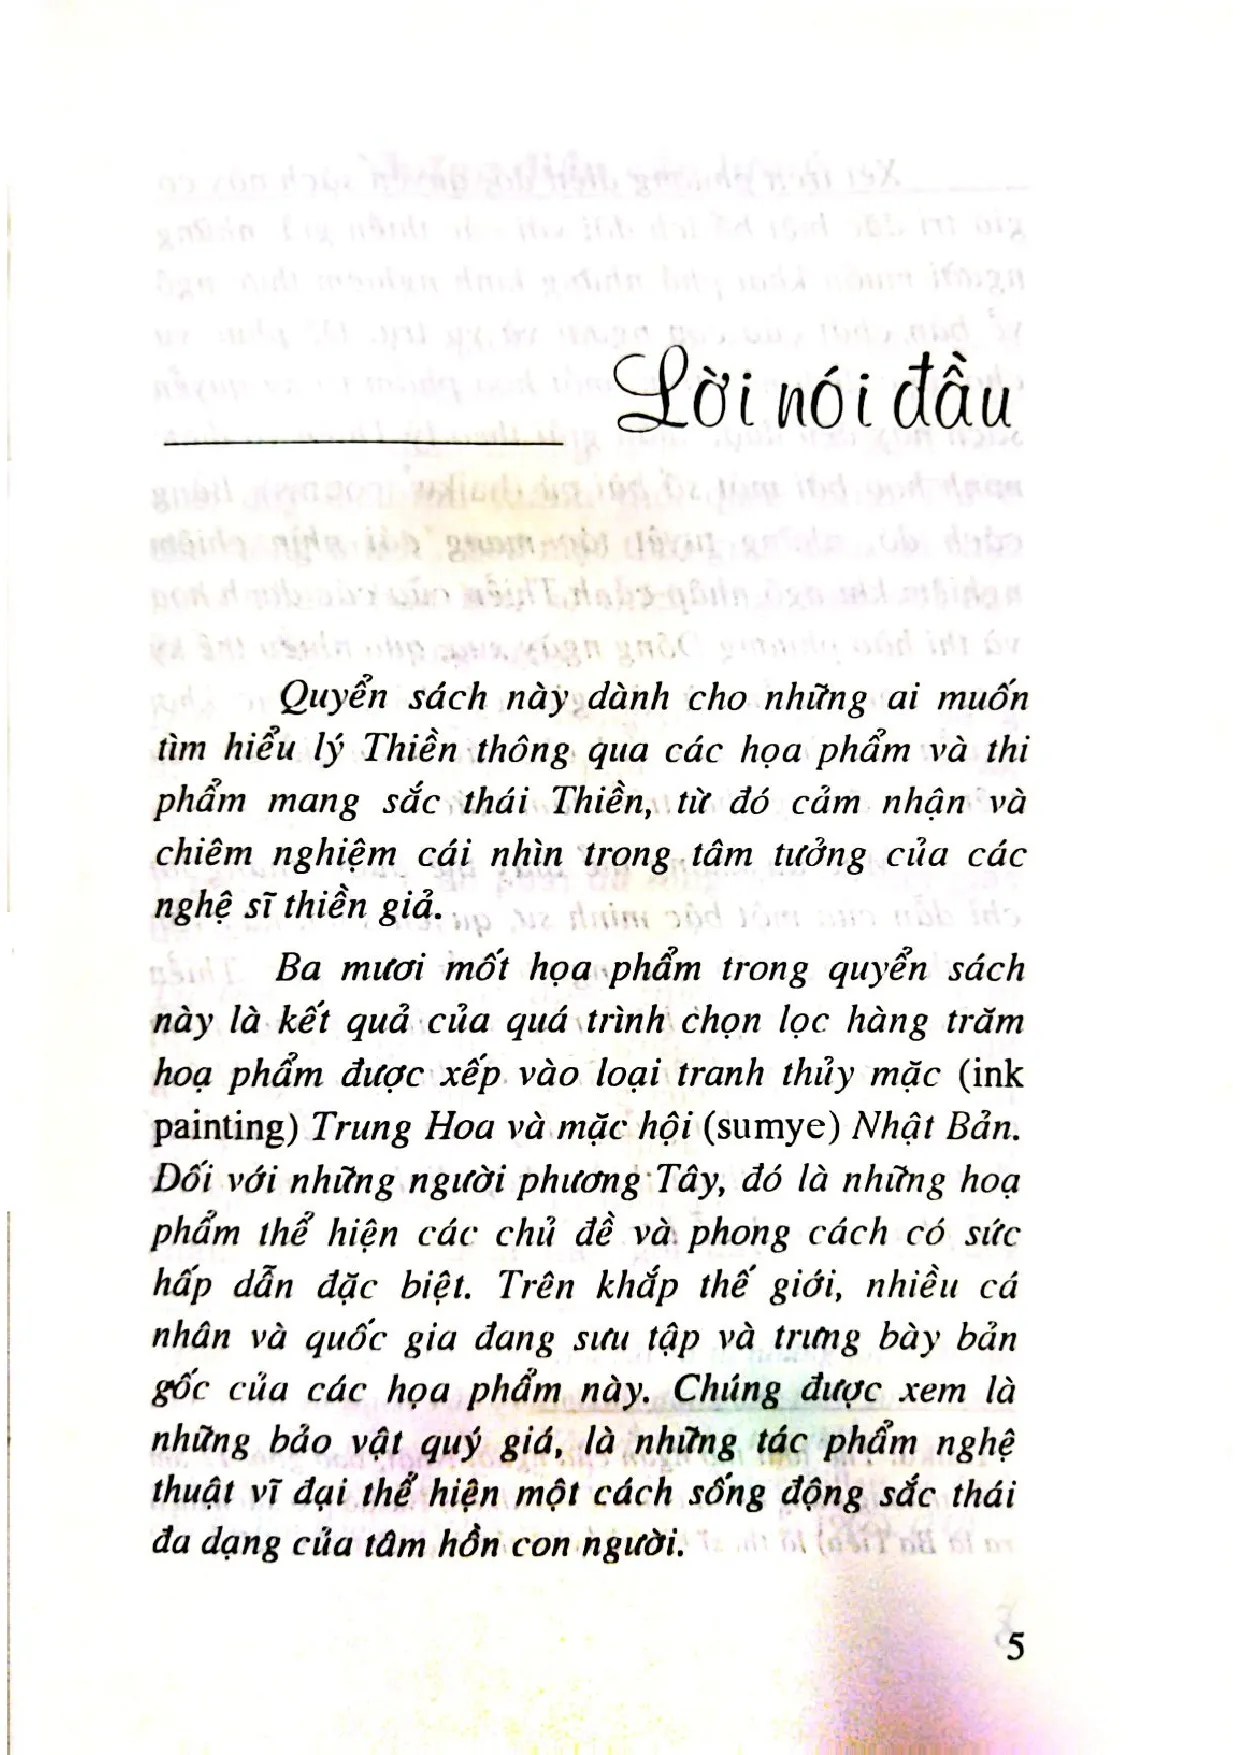 Lời nói đầu
Quyển sách này dành cho những ai muốn
tìm hiểu lý Thiền thông qua các họa phẩm và thi
phẩm mang sắc thái Thiền, từ đó cảm nhận và
chiêm nghiệm cái nhìn trong tâm tưởng của các
nghệ sĩ thiền giả.
Ba mươi mốt họa phẩm trong quyển sách
này là kết quả của quá trình chọn lọc hàng trăm
hoạ phẩm được xếp vào loại tranh thủy mặc (ink
painting) Trung Hoa và mặc hội (sumye) Nhật Bản.
Đối với những người phương Tây, đó là những hoạ
phẩm thể hiện các chủ đề và phong cách có sức
hấp dẫn đặc biệt. Trên khắp thế giới, nhiều cá
nhân và quốc gia đang sưu tập và trưng bày bản
gốc của các họa phẩm này. Chúng được xem là
những bảo vật quý giá, là những tác phẩm nghệ
thuật vĩ đại thể hiện một cách sống động sắc thái
đa dạng của tâm hồn con người.
5